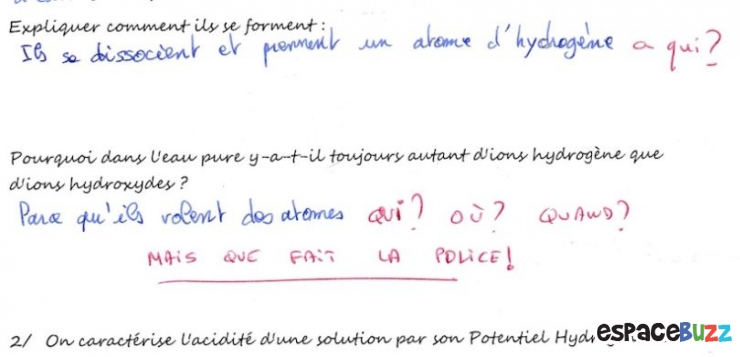 Expliquer comment ils se forment :
Ils se dissocient et prennent un atome d'hydrogène a qui ?
Pourquoi dans l'eau pure y-a-t-il toujours autant d'ions hydrogène que
d'ions hydroxydes ?
Parce qu'ils volent des atomes QUI ? OÙ ? QUAND ?
MAIS QUE FAIT LA POLICE !
2/ On caractérise l'acidité d'une solution par son Potentiel
ESPACEBUZZ